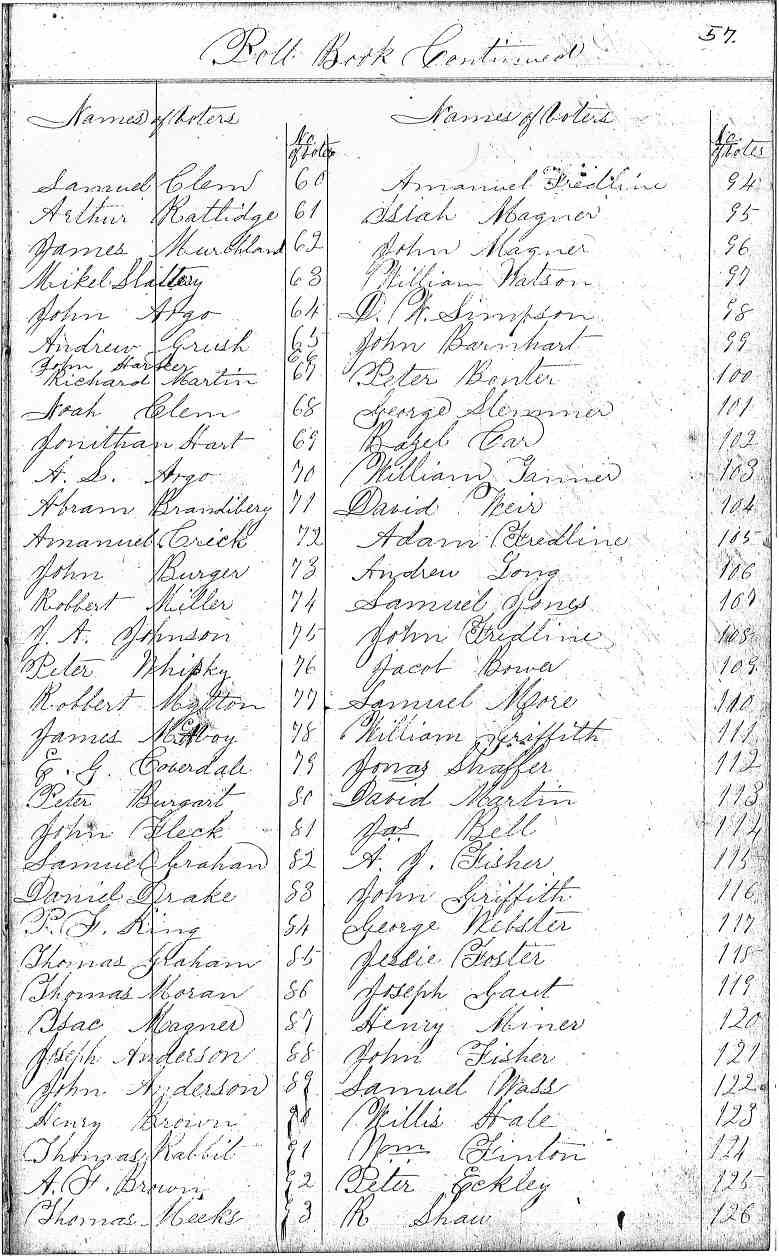 57.
Poll Book Continued
Names of Voters
No. of votes
Samuel Clem 60
Arthur Ratlidge 61
James Murchland 62
Mikel Slattery 63
John Argo 64
Andrew Grush 65
John Harker 66
Richard Martin 67
Noah Clem 68
Jonithan Hart 69
A. S. Argo 70
Abram Brandibery 71
Amanuel Crick 72
John Burger 73
Robbert Miller 74
J. A. Johnson 75
Peter Whisky 76
Robbert Motton 77
James McAvoy 78
E. G. Coverdale 79
Peter Burgart 80
John Fleck 81
Samuel Grahan 82
Daniel Drake 83
P. F. King 84
Thomas Graham 85
Thomas Moran 86
Isac Magner 87
Joseph Anderson 88
John Anderson 89
Henry Brown 90
Thomas Rabbit 91
A. F. Brown 92
Thomas Meeks 93
Names of Voters
No. of votes
Amanuel Fredline 94
Isiah Magner 95
John Magner 96
William Watson 97
D. W. Simpson 98
John Barnhart 99
Peter Bonter 100
George Slemmer 101
Bazel Car 102
William Tanner 103
David Weir 104
Adam Fredline 105
Andrew Long 106
Samuel Jones 107
John Fredline 108
Jacob Bower 109
Samuel More 110
William Griffith 111
Jonas Shaffer 112
David Martin 113
Jas Bell 114
A. J. Fisher 115
John Griffith 116
George Webster 117
Jessie Foster 118
Joseph Gaut 119
Henry Miner 120
John Fisher 121
Samuel Wass 122
Willis Hale 123
Wm Finton 124
Peter Eckley 125
R Shaw 126